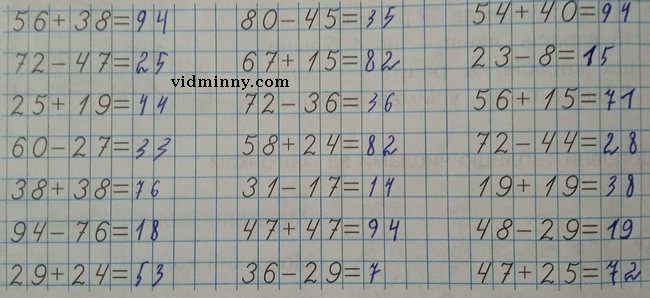 56+38=94 80-45=35 54+40=94
72-47=25 67+15=82 23-8=15
vidminny.com
25+19=44 72-36=36 56+15=71
60-27=33 58+24=82 72-44=28
38+38=76 31-17=14 19+19=38
94-76=18 47+47=94 48-29=19
29+24=53 36-29=7 47+25=72